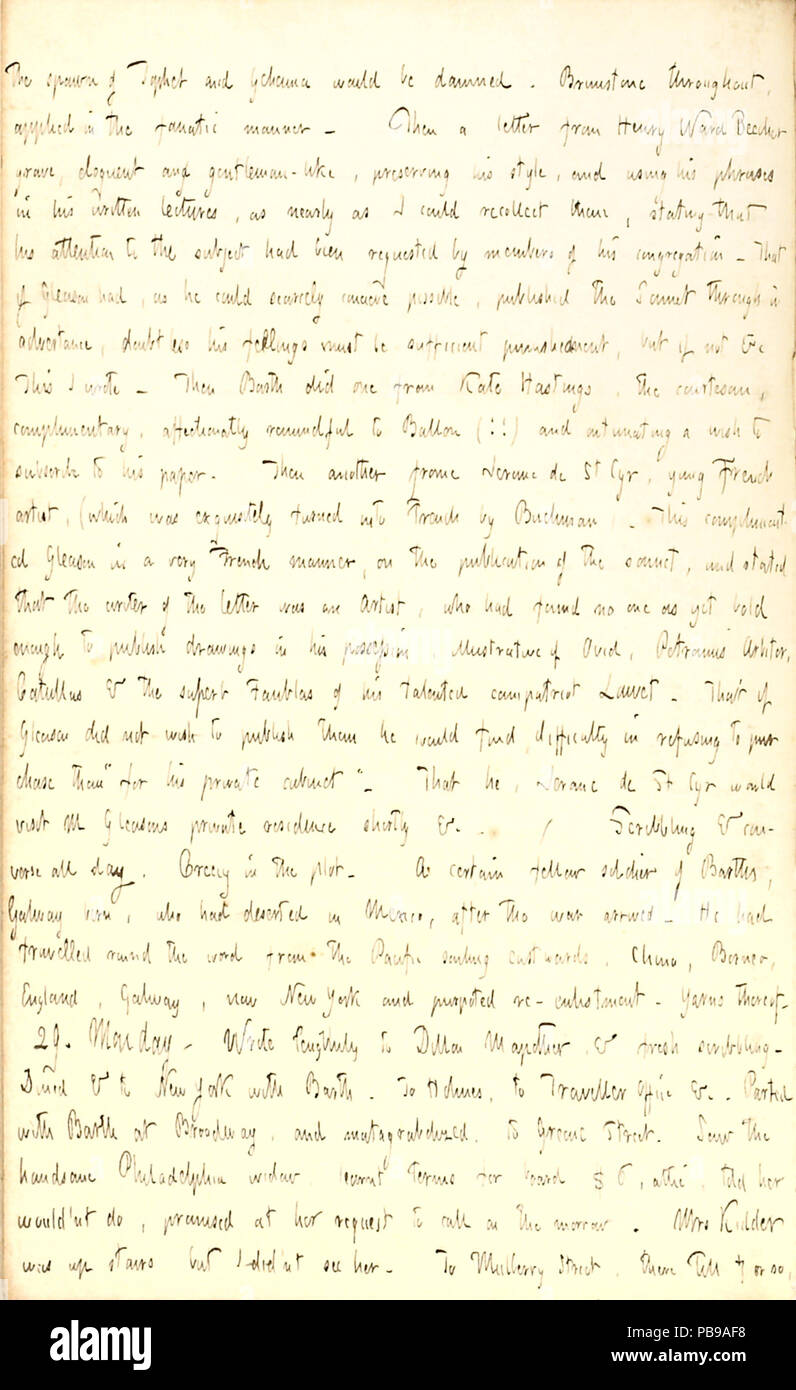 The spawn of Tophet and Gehenna would be damned. Brimstone throughout,
applied in the fanatic manner - Then a letter from Henry Ward Beecher
grave, eloquent and gentleman-like, preserving his style, and using his phrases
in his written lectures, as nearly as I could recollect them, stating that
his attention to the subject had been requested by members of his congregation - That
if Gleason had, as he could scarcely conceive possible, published the Sonnet through in
advertance, doubtless his feelings must be sufficient punishment, but if not &c
This I wrote - Then Barth did one from Kate Hastings, the courtesan,
complimentary, affectionatly remindful to Ballou (!!) and intimating a wish to
subscribe to his paper. Then another frome Jerome de St Cyr, yung French
artist, (which was exquisitely turned into French by Buchman). This compliment
ed Gleason in a very French manner, on the publication of the sonnet, and stated
that the writer of the letter was an Artist, who had found no one as yet bold
enough to publish drawings in his possession, illustrative of Ovid, Petronius Arbiter,
Catullus & the superb Faublas of his talented compatriot Louvet - That if
Gleason did not wish to publish them he would find difficulty in refusing to pur
chase them "for his private cabinet" - That he, Jerome de St Cyr would
visit M Gleasons private residence shortly &c. / Scribbling & con-
verse all day. Creecy in the plot - A certain fellow soldier of Barths,
Galway born, who had deserted in Mexico, after the war arrived - He had
travelled round the word from the Pacific sailing eastwards, China, Borneo,
England, Galway, now New York and purpoted re-enlistment - Yarns thereof -
29. Monday - Wrote lengthily to Dillon Mapother, & fresh scribbling -
Dined & to New York with Barth. To Holmes, to Traveller Office &c. Parted
with Barth at Broadway, and matagrabolized, to Greene Street. Saw the
handsome Philadelphia widow, learnt terms for board $ 6, attic, told her
would'nt do, promised at her request to call on the morrow. Mrs Kidder
was up stairs but I did'nt see her - To Mulberry Street, there till 7 or so,
alamy
Image ID: PB9AF8
www.alamy.com